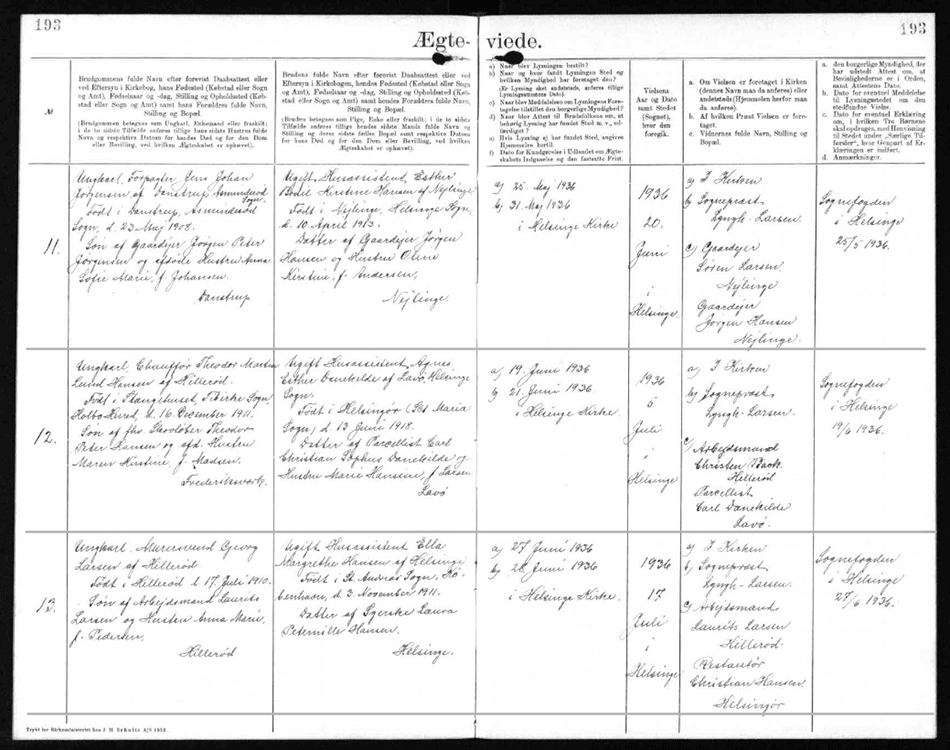 193
193
Ægte-
viede.
№
Brudgommens fulde Navn efter forevist Daabsattest eller
ved Eftersyn i Kirkebog, hans Fødested (Købstad eller Sogn
og Amt), Fødselsaar og -dag, Stilling og Opholdssted (Køb-
stad eller Sogn og Amt) samt hans Forældres fulde Navn,
Stilling og Bopæl.
(Brudgommen betegnes som Ungkarl, Enkemand eller fraskilt;
i de to sidste Tilfælde anføres tillige hans sidste Hustrus fulde
Navn og respektive Datoen for hendes Død og for den Dom
eller Bevilling, ved hvilken Ægteskabet er ophævet).
Brudens fulde Navn efter forevist Daabsattest eller ved
Eftersyn i Kirkebogen, hendes Fødested (Købstad eller Sogn
og Amt), Fødselsaar og -dag, Stilling og Opholdssted (Køb-
stad eller Sogn og Amt) samt hendes Forældres fulde Navn,
Stilling og Bopæl.
(Bruden betegnes som Pige, Enke eller fraskilt; i de to sidste
Tilfælde anføres tillige hendes sidste Mands fulde Navn og
Stilling og deres sidste fælles Bopæl samt respektive Datoen
for hans Død og for den Dom eller Bevilling, ved hvilken
Ægteskabet er ophævet).
a) Naar blev Lysningen bestilt?
b) Naar og hvor fandt Lysningen Sted og
hvilken Myndighed har foretaget den?
(Er Lysning sket andetsteds, anføres tillige
Lysningsattestens Dato).
c) Naar blev Meddelelsen om Lysningens Fore-
tagelse tilstillet den borgerlige Myndighed?
d) Naar blev Attest til Brudefolkene om, at
behørig Lysning har fundet Sted m. v., ud-
færdiget?
e) Hvis Lysning ej har fundet Sted, angives
Hjemmelen hertil.
f) Dato for Kundgørelse i Udlandet om Ægte-
skabets Indgaaelse og den fastsatte Frist.
Vielsens
Aar og Dato
samt Stedet
(Sognet),
hvor den
foregik.
a. Om Vielsen er foretaget i Kirken
(dennes Navn maa da anføres) eller
andetsteds (Hjemmelen herfor maa
da anføres).
b. Af hvilken Præst Vielsen er fore-
taget.
c. Vidnernes fulde Navn, Stilling og
Bopæl.
a. den borgerlige Myndighed, der
har udstedt Attest om, at
Betingelserne er i Orden,
samt Attestens Dato.
b. Dato for eventuel Meddelelse
til Lysningsstedet om den
stedfundne Vielse.
c. Dato for eventuel Erklæring
om, i hvilken Tro Børnene
skal opdrages, med Henvisning
til Stedet under „Særlige Til-
førsler“, hvor Genpart af Er-
klæringen er indført.
d. Anmærkninger.
11.
Ungkarl, Forpagter Jens Johan
Jørgensen af Danstrup, Asminderød
Sogn.
Født i Danstrup, Asminderød
Sogn, d. 23 Maj 1908.
Søn af Gaardejer Jørgen Peter
Jørgensen og afdøde Hustru Anna
Sofie Marie, f. Johansen.
Danstrup
Ugift, Husassistent, Esther
Bodil Kirstine Hansen af Nejlinge
Født i Nejlinge, Helsinge Sogn,
d. 10. April 1913.
Datter af Gaardejer Jørgen
Hansen og Hustru Oline
Kirstine, f. Andersen,
Nejlinge.
a) 25. Maj 1936
b) 31 Maj 1936
i Helsinge Kirke
1936
20.
Juni
i
Helsinge
a) I Kirken
b) Sognepræst
Lyngh-Larsen.
c) Gaardejer
Søren Larsen
Nejlinge
Gaardejer
Jørgen Hansen
Nejlinge.
Sognefogden
i Helsinge
25/5 1936.
12.
Ungkarl, Chauffør Theodor Marten
Lund Hansen af Hillerød.
Født i Stængehuset, Tibirke Sogn,
Holbo Herred, d. 16. December 1911.
Søn af fhv. Skovløber Theodor
Peter Hansen og afd. Hustru
Maren Kirstine, f. Madsen.
Frederiksværk.
Ugift Husassistent, Agnes
Esther Danekilde af Lavø, Helsinge
Sogn.
Født i Helsingør (Sct. Maria
Sogn) d 13 Juni 1918.
Datter af Parcellist Carl
Christian Sophus Danekilde og
Hustru Marie Hansine, f. Larsen
Lavø
a) 19. Juni 1936
b) 21. Juni 1936.
i Helsinge Kirke.
1936
5
Juli
i
Helsinge
a) I Kirken
b) Sognepræst
Lyngh-Larsen.
c) Arbejdsmand
Christen Baak
Hillerød
Parcellist
Carl Danekilde
Lavø.
Sognefogden
i Helsinge
19/6 1936.
13.
Ungkarl, Murersvend Georg
Larsen af Hillerød
Født i Hillerød d. 17. Juli 1910.
Søn af Arbejdsmand Laurits
Larsen og Hustru Anna Marie,
f. Pedersen.
Hillerød
Ugift Husassistent Ella
Margrethe Hansen af Helsinge
Født i St. Andræs Sogn, Kø-
benhavn, d. 3. November 1911.
Datter af Syerske Laura
Peternille Hansen.
Helsinge.
a) 27 Juni 1936
b) 28 Juni 1936
i Helsinge Kirke.
1936
17.
Juli
i
Helsinge
a) I Kirken
b) Sognepræst
Lyngh-Larsen.
c) Arbejdsmand
Laurits Larsen
Hillerød.
Restauratør
Christian Hansen.
Helsingør
Sognefogden
i Helsinge
27/6 1936.